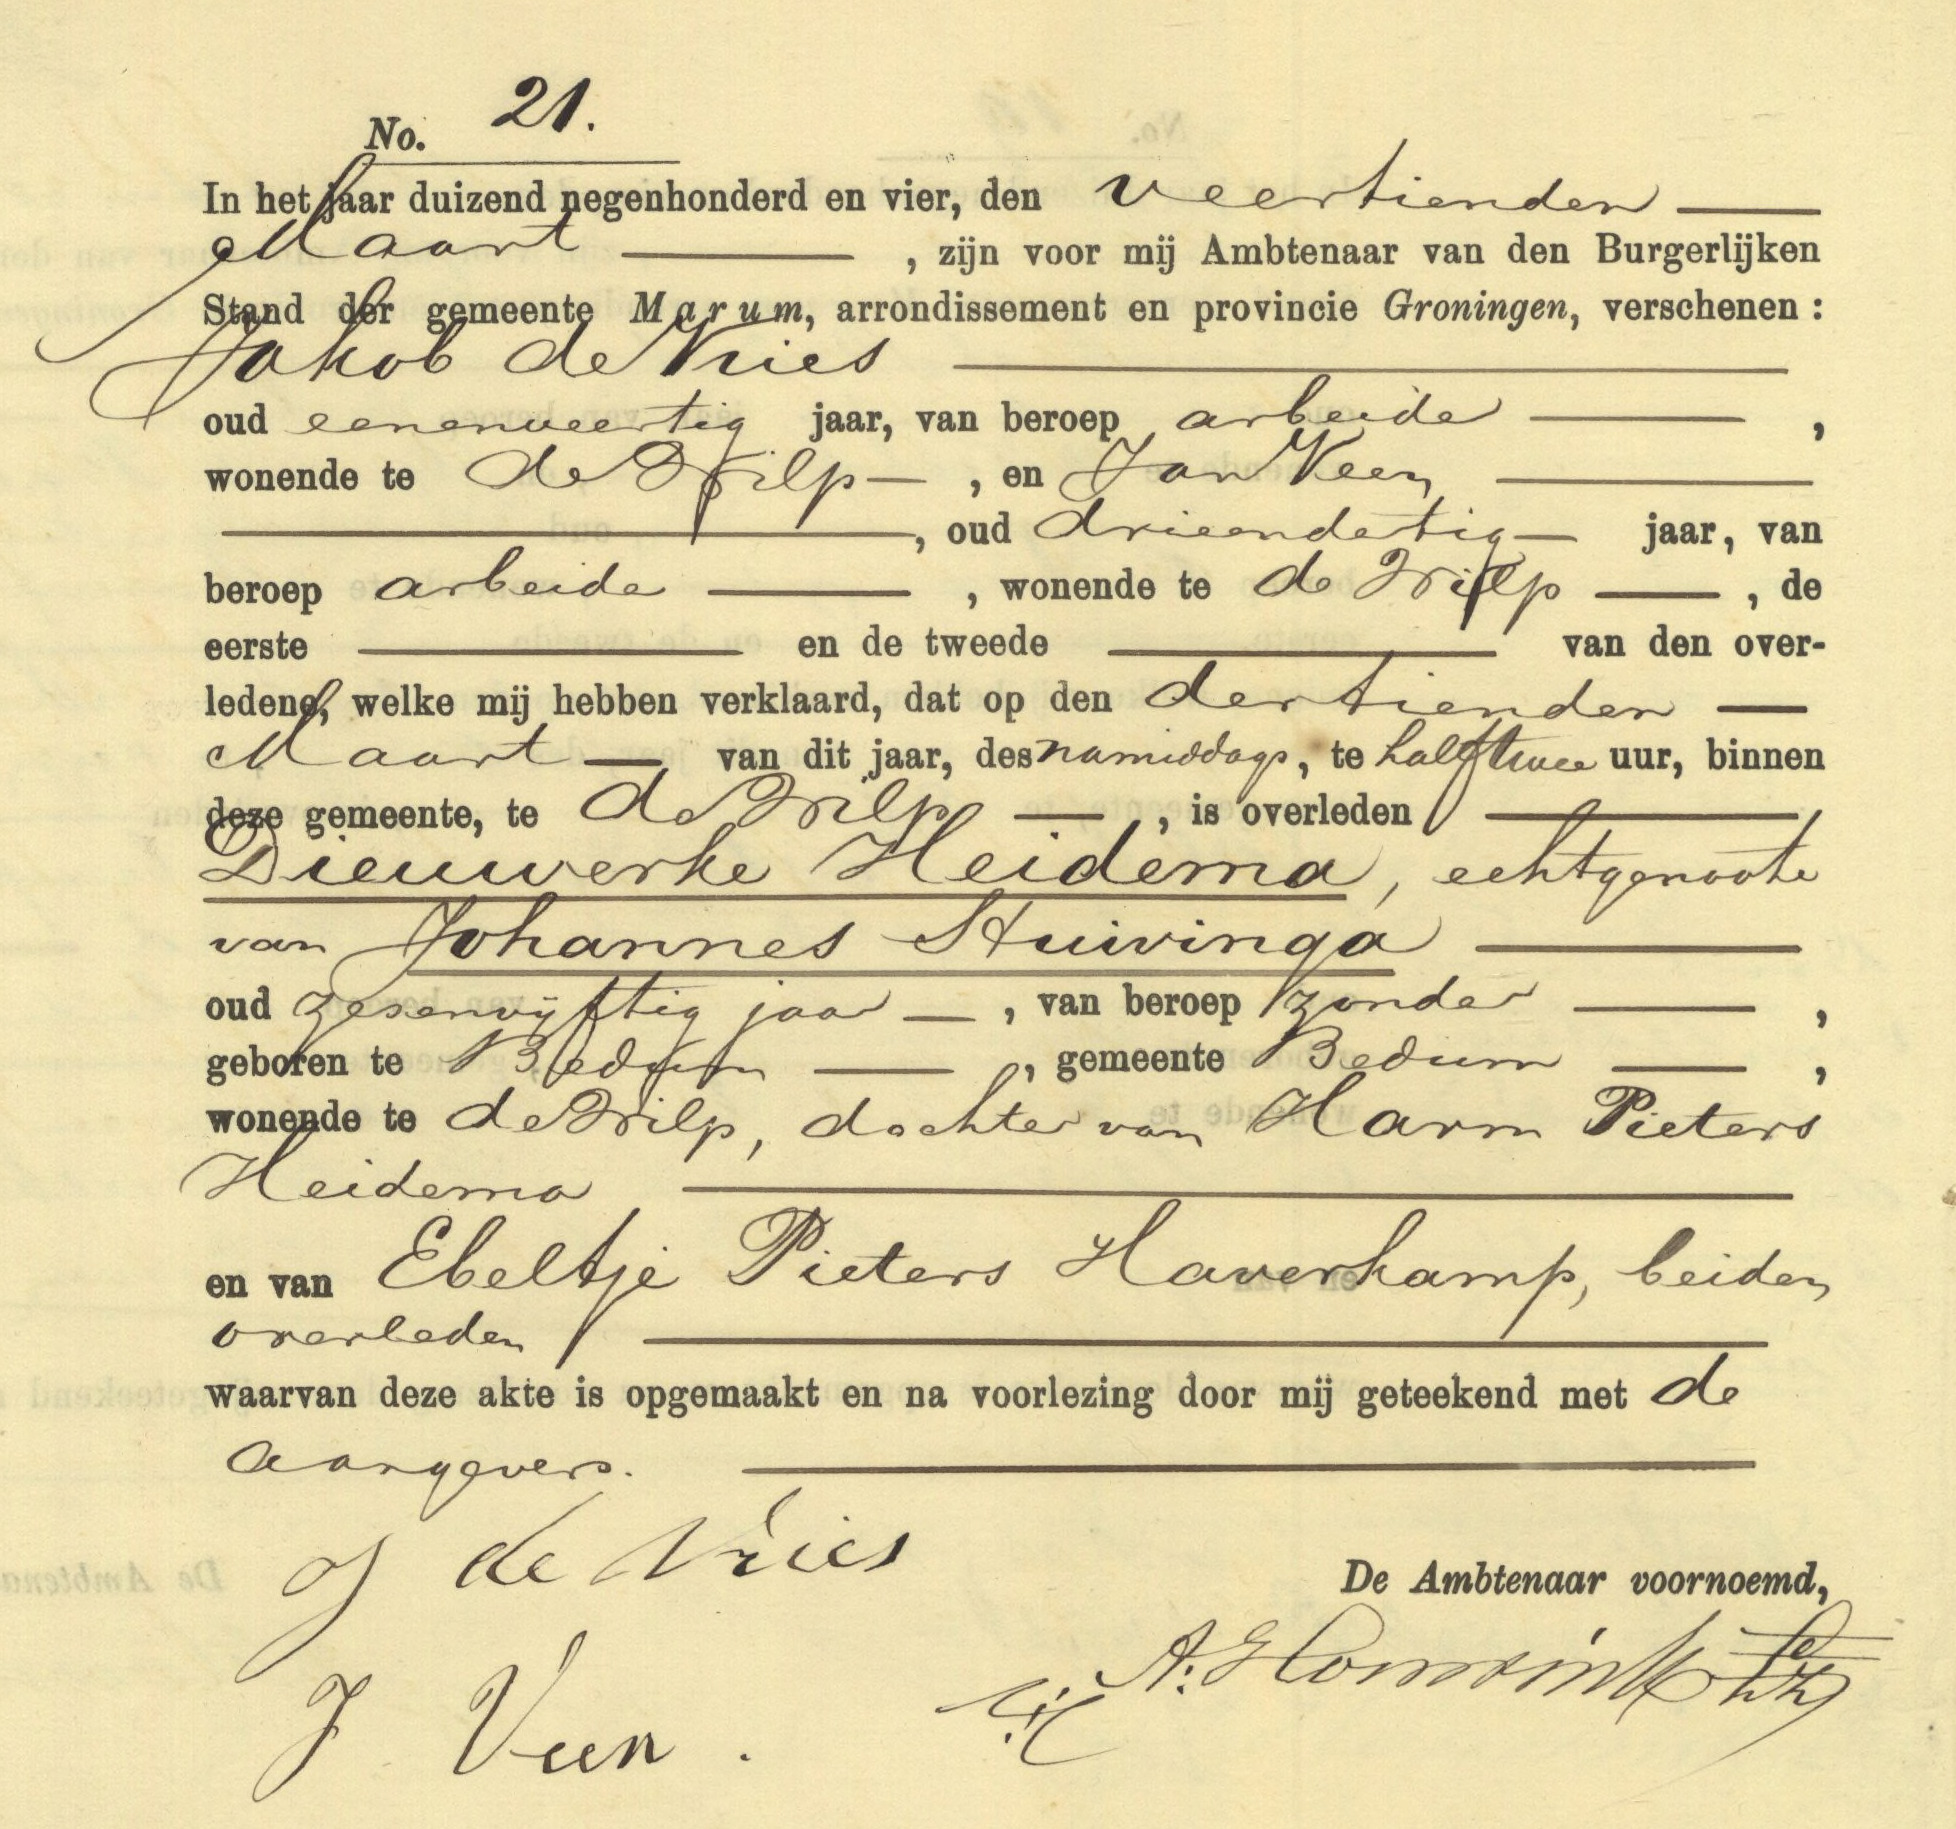 No. 21.
In het jaar duizend negenhonderd en vier, den veertienden
Maart , zijn voor mij Ambtenaar van den Burgerlijken
Stand der gemeente Marum, arrondissement en provincie Groningen, verschenen :
Jakob de Vries
oud eenenveertig jaar, van beroep arbeider ,
wonende te de Wilp , en Jan Veen
, oud drieendertig jaar, van
beroep arbeider , wonende te de Wilp , de
eerste en de tweede van den over-
ledene, welke mij hebben verklaard, dat op den dertienden
Maart van dit jaar, des namiddags, te half twee uur, binnen
deze gemeente, te de Wilp , is overleden
Dieuwerke Heidema, echtgenoote
van Johannes Stuivinga
oud zesenvijftig jaar , van beroep zonder ,
geboren te Bedum , gemeente Bedum ,
wonende te de Wilp, dochter van Harm Pieters
Heidema
en van Ebeltje Pieters Haverkamp, beiden
overleden
waarvan deze akte is opgemaakt en na voorlezing door mij geteekend met de
aangevers.
J de Vries
De Ambtenaar voornoemd,
J Veen.